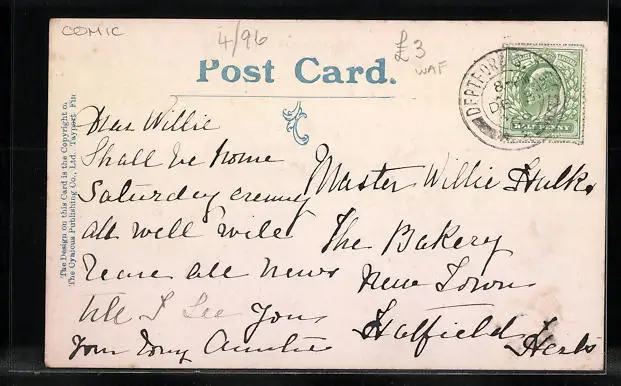 COMIC
4/96
£3
WAF
Post Card.
DEPTFORD
HALFPENNY
The Design on this Card is the Copyright o.
The Cynicus Publishing Co., Ltd., Tayport Fife
Dear Willie
Shall be home
Saturday evening
all well will
leave all news
till I See You
Your Aunties
Master Willie Hulks
The Bakery
New Town
Hatfield Herts